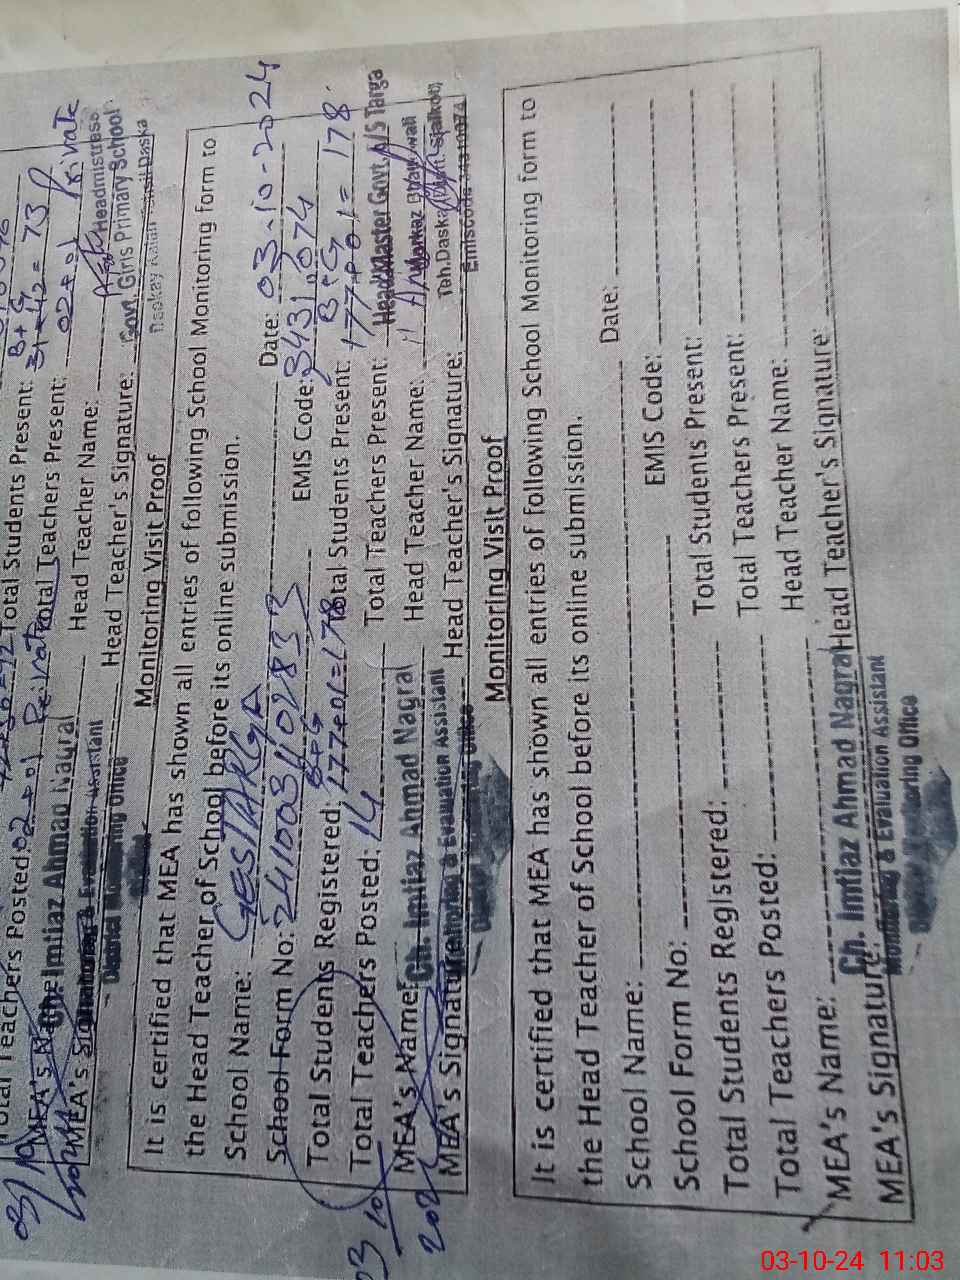 Total Students Present:
B+G
Total Teachers Posted: 02+01 Private Total Teachers Present: 31+42=73
02+01 Private
MEA's Name: Ch. Imtiaz Ahmad Nagra Head Teacher Name:
Headmistress
MEA's Signature: Monitoring & Evaluation Assistant Head Teacher's Signature: Govt. Girls Primary School
District Monitoring Office
Daska
Monitoring Visit Proof
It is certified that MEA has shown all entries of following School Monitoring form to
the Head Teacher of School before its online submission.
School Name: GES TARGA Date: 03-10-2024
School Form No: EMIS Code: 34310074
B+G B+G
Total Students Registered: 177+01=178 Total Students Present: 177+01=178
Total Teachers Posted: 14 Total Teachers Present:
Head Master Govt. E/S Targa
MEA's Name: Ch. Imtiaz Ahmad Nagra Head Teacher Name:
Markaz
MEA's Signature: Monitoring & Evaluation Assistant Head Teacher's Signature:
Teh. Daska Distt. Sialkot
Emiscode
03/10
2024
Monitoring Visit Proof
It is certified that MEA has shown all entries of following School Monitoring form to
the Head Teacher of School before its online submission.
School Name: Date:
School Form No: EMIS Code:
Total Students Registered: Total Students Present:
Total Teachers Posted: Total Teachers Present:
MEA's Name: Head Teacher Name:
Ch. Imtiaz Ahmad Nagra
MEA's Signature: Head Teacher's Signature
Monitoring & Evaluation Assistant
District Monitoring Office
03-10-24 11:03